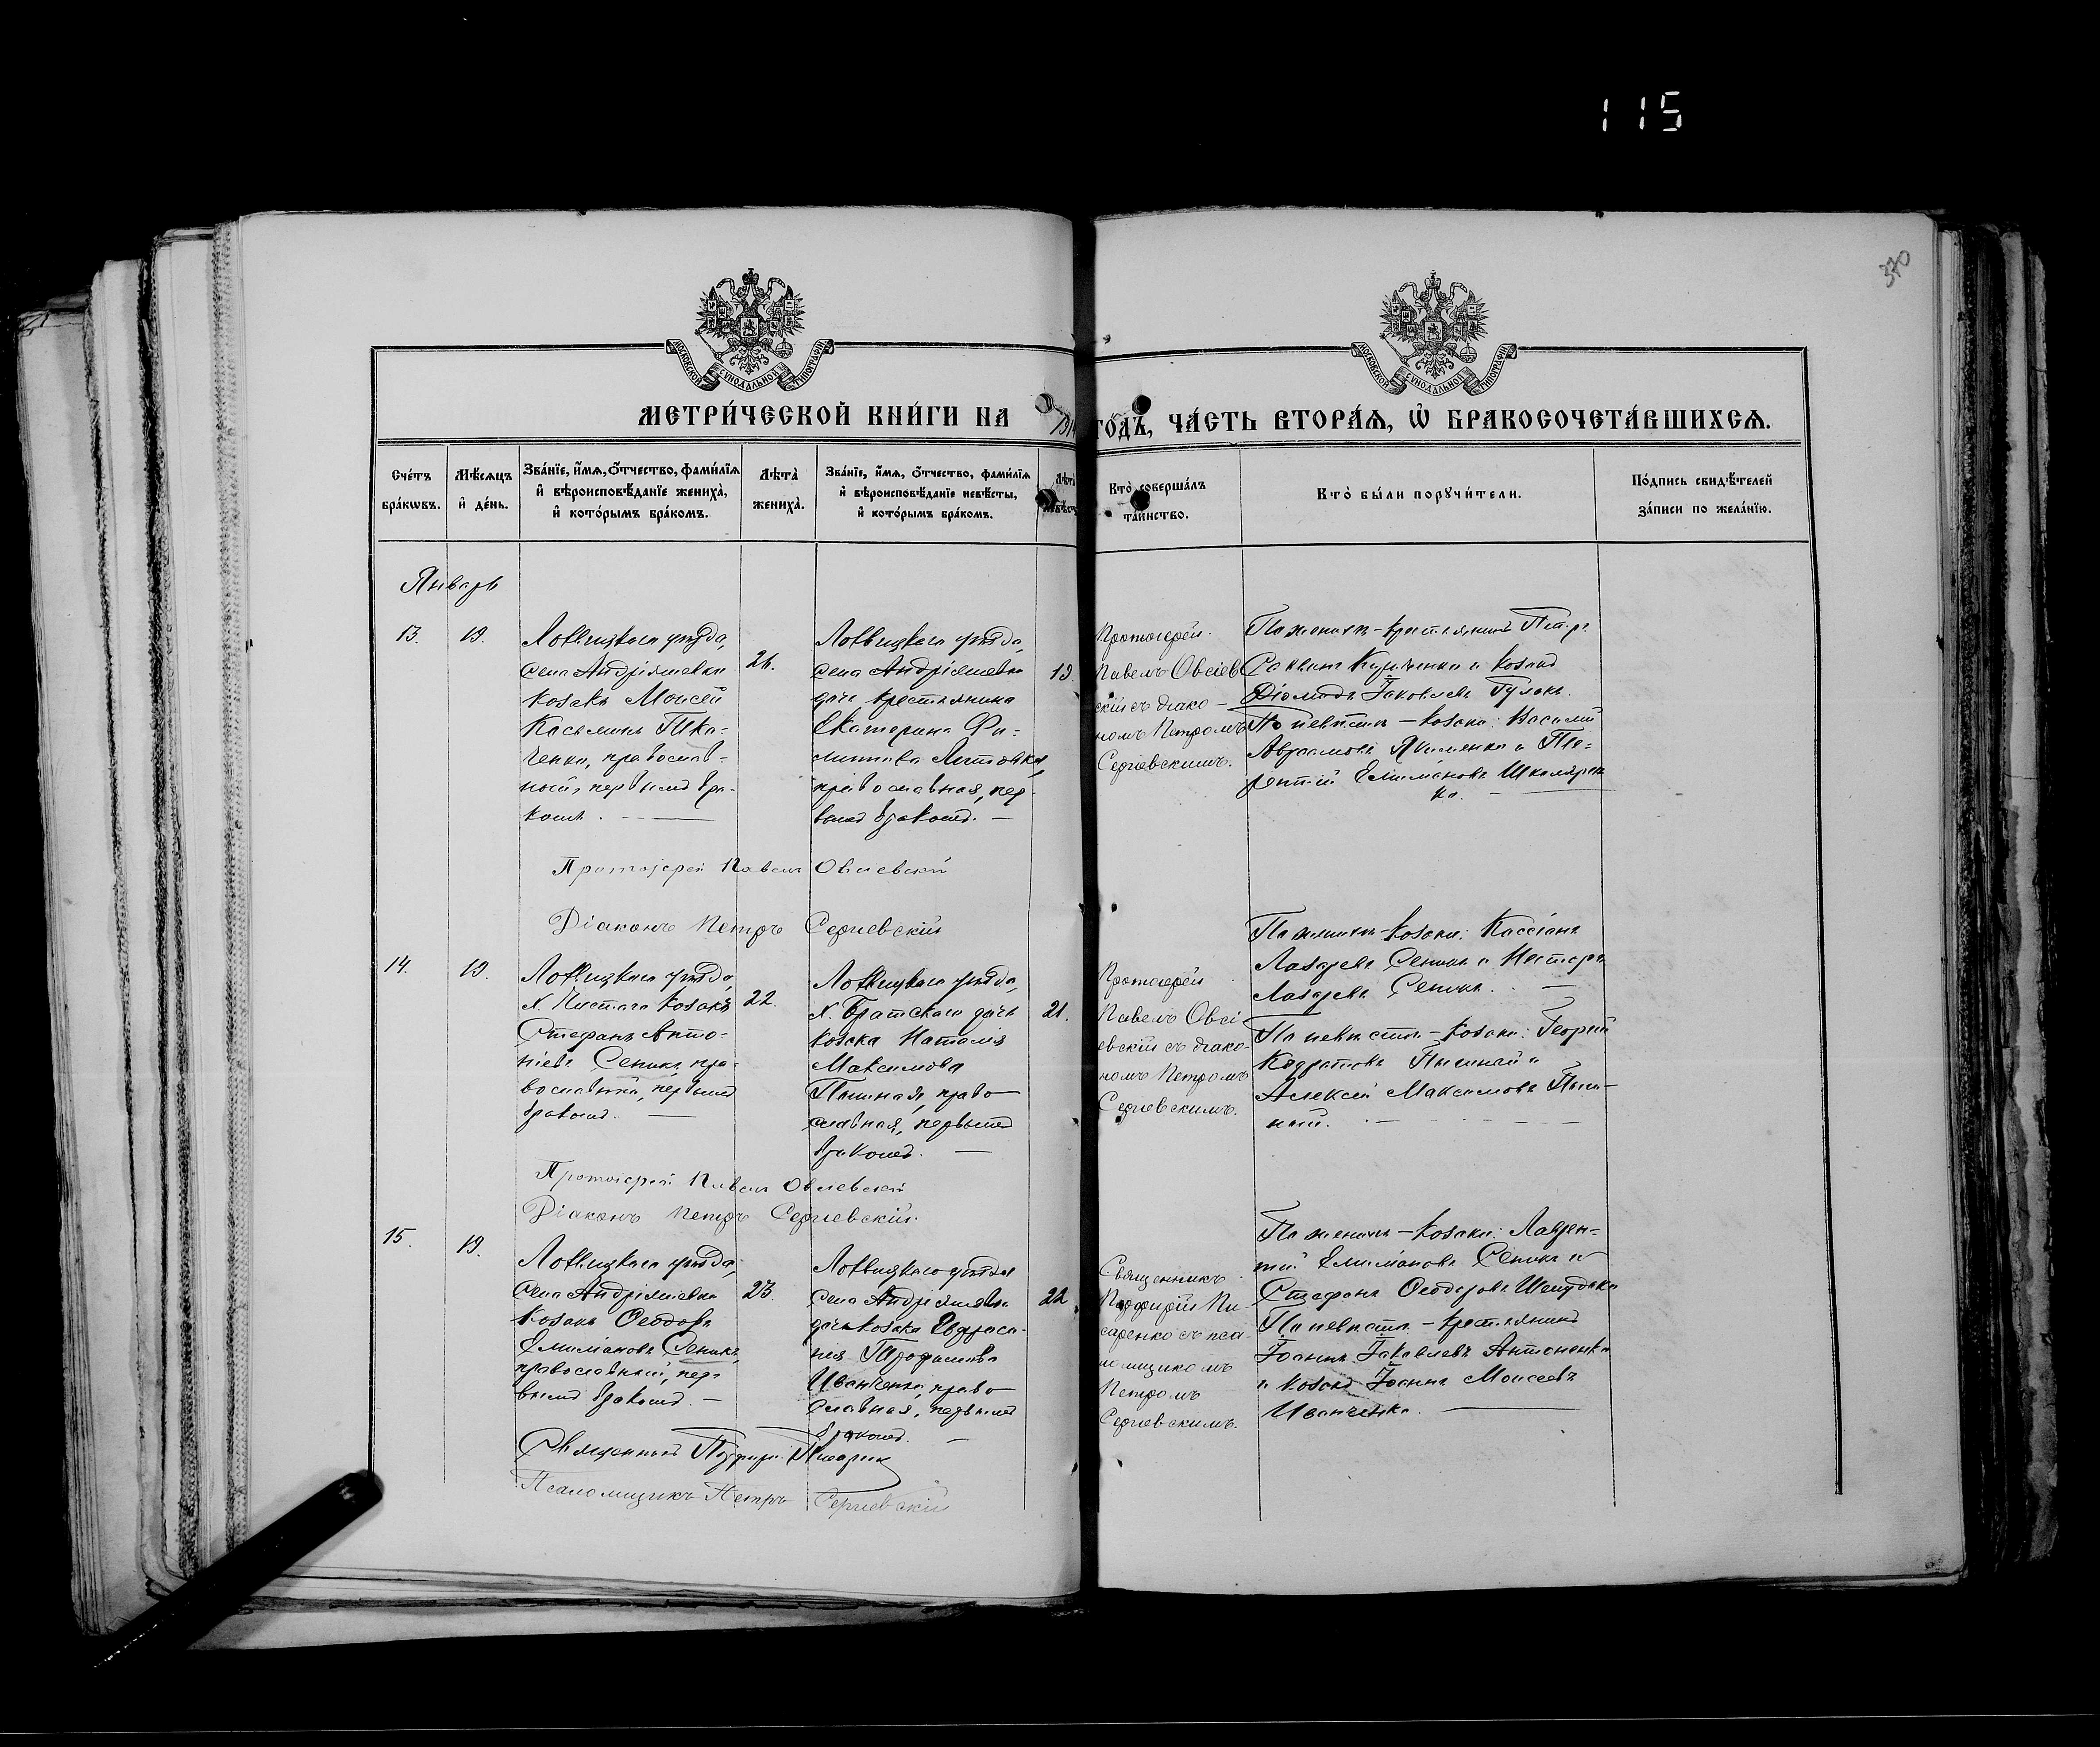 115
370
МОСКОВСКОЙ СѴНОДАЛЬНОЙ ТИПОГРАФІИ
МОСКОВСКОЙ СѴНОДАЛЬНОЙ ТИПОГРАФІИ
МЕТРИ́ЧЕСКОЙ КНИ́ГИ НА 191
ГО́ДЪ, ЧА́СТЬ ВТОРА́Ѧ, Ѡ҆ БРАКОСОЧЕТА́ВШИХСѦ.
Сче́тъ бра́кѡвъ.
Мѣ́сѧцъ и҆ де́нь.
Зва́нїе, и҆́мѧ, ѻ҆́тчество, фами́лїѧ
и҆ вѣроисповѣ́данїе жениха̀,
и҆ кото́рымъ бра́комъ.
Лѣ́та̀ жениха̀.
Зва́нїе, и҆́мѧ, ѻ҆́тчество, фами́лїѧ
и҆ вѣроисповѣ́данїе невѣ́сты,
и҆ кото́рымъ бра́комъ.
Кто̀ соверша́лъ
та́инство.
Кто̀ бы́ли порꙋчи́тели.
По́дпись свидѣ́телей
за́писи по жела́нїю.
Январь
13.
19.
Лохвицкаго уѣзда,
села Андріяшевки
козакъ Моисей
Касьяновъ Тка-
ченко, православ-
ный, первымъ бра-
комъ.
Лохвицкаго уѣзда,
села Андріяшевки
дочь крестьянина
Екатерина Фи-
липпова
православная, пер-
вымъ бракомъ. —
19
Протоіерей
Павелъ Овсіев
скій съ діако-
номъ Петромъ
Сергіевскимъ.
По женихѣ - крестьянинъ Петръ
и козакъ
Діомидъ Іаковлевъ Гулакъ.
По невѣстѣ - козаки: Василій
Авраамовъ Якименко и Те-
рентій Емиліановъ Школярен
ко. —
Протоіерей Павелъ Овсіевскій
Діаконъ Петръ Сергіевскій
14.
19.
Лохвицкаго уѣзда,
х. Чистаго козакъ
Стефанъ Анто-
ніевъ Сеникъ, пра-
вославный, первымъ
бракомъ. —
22.
Лохвицкаго уѣзда,
х. Братскаго дочь
козака Наталія
Максимова
право-
славная, первымъ
бракомъ. —
21.
Протоіерей
Павелъ Овсі
евскій съ діако-
номъ Петромъ
Сергіевскимъ.
По женихѣ - козаки: Кассіанъ
Лазаревъ Сеникъ и Несторъ
Лазаревъ Сеникъ. —
По невѣстѣ - козаки: Георгій
и
Алексій Максимовъ
ный.
Протоіерей Павелъ Овсіевскій
Діаконъ Петръ Сергіевскій.
15.
19.
Лохвицкаго уѣзда,
села Андріяшевки
козакъ Ѳеодоръ
Емиліановъ Сеникъ,
православный, пер-
вымъ бракомъ. —
23.
Лохвицкаго уѣзда
села Андріяшевки
дочь козака Евфраси-
нія Трофимова
Иванченко, право-
славная, первымъ
бракомъ. —
22
Священникъ
Порфирій Пи-
саренко съ пса-
ломщикомъ
Петромъ
Сергіевскимъ.
По женихѣ - козаки: Лаврен-
тій Емиліановъ Сеникъ и
Стефанъ Ѳеодоровъ Шелудько
По невѣстѣ - крестьянинъ
Іоаннъ Іаковлевъ Антоненко
и козакъ Іоаннъ Моисеевъ
Иванченко. —
Священникъ Порфирій Писаренко
Псаломщикъ Петръ Сергіевскій